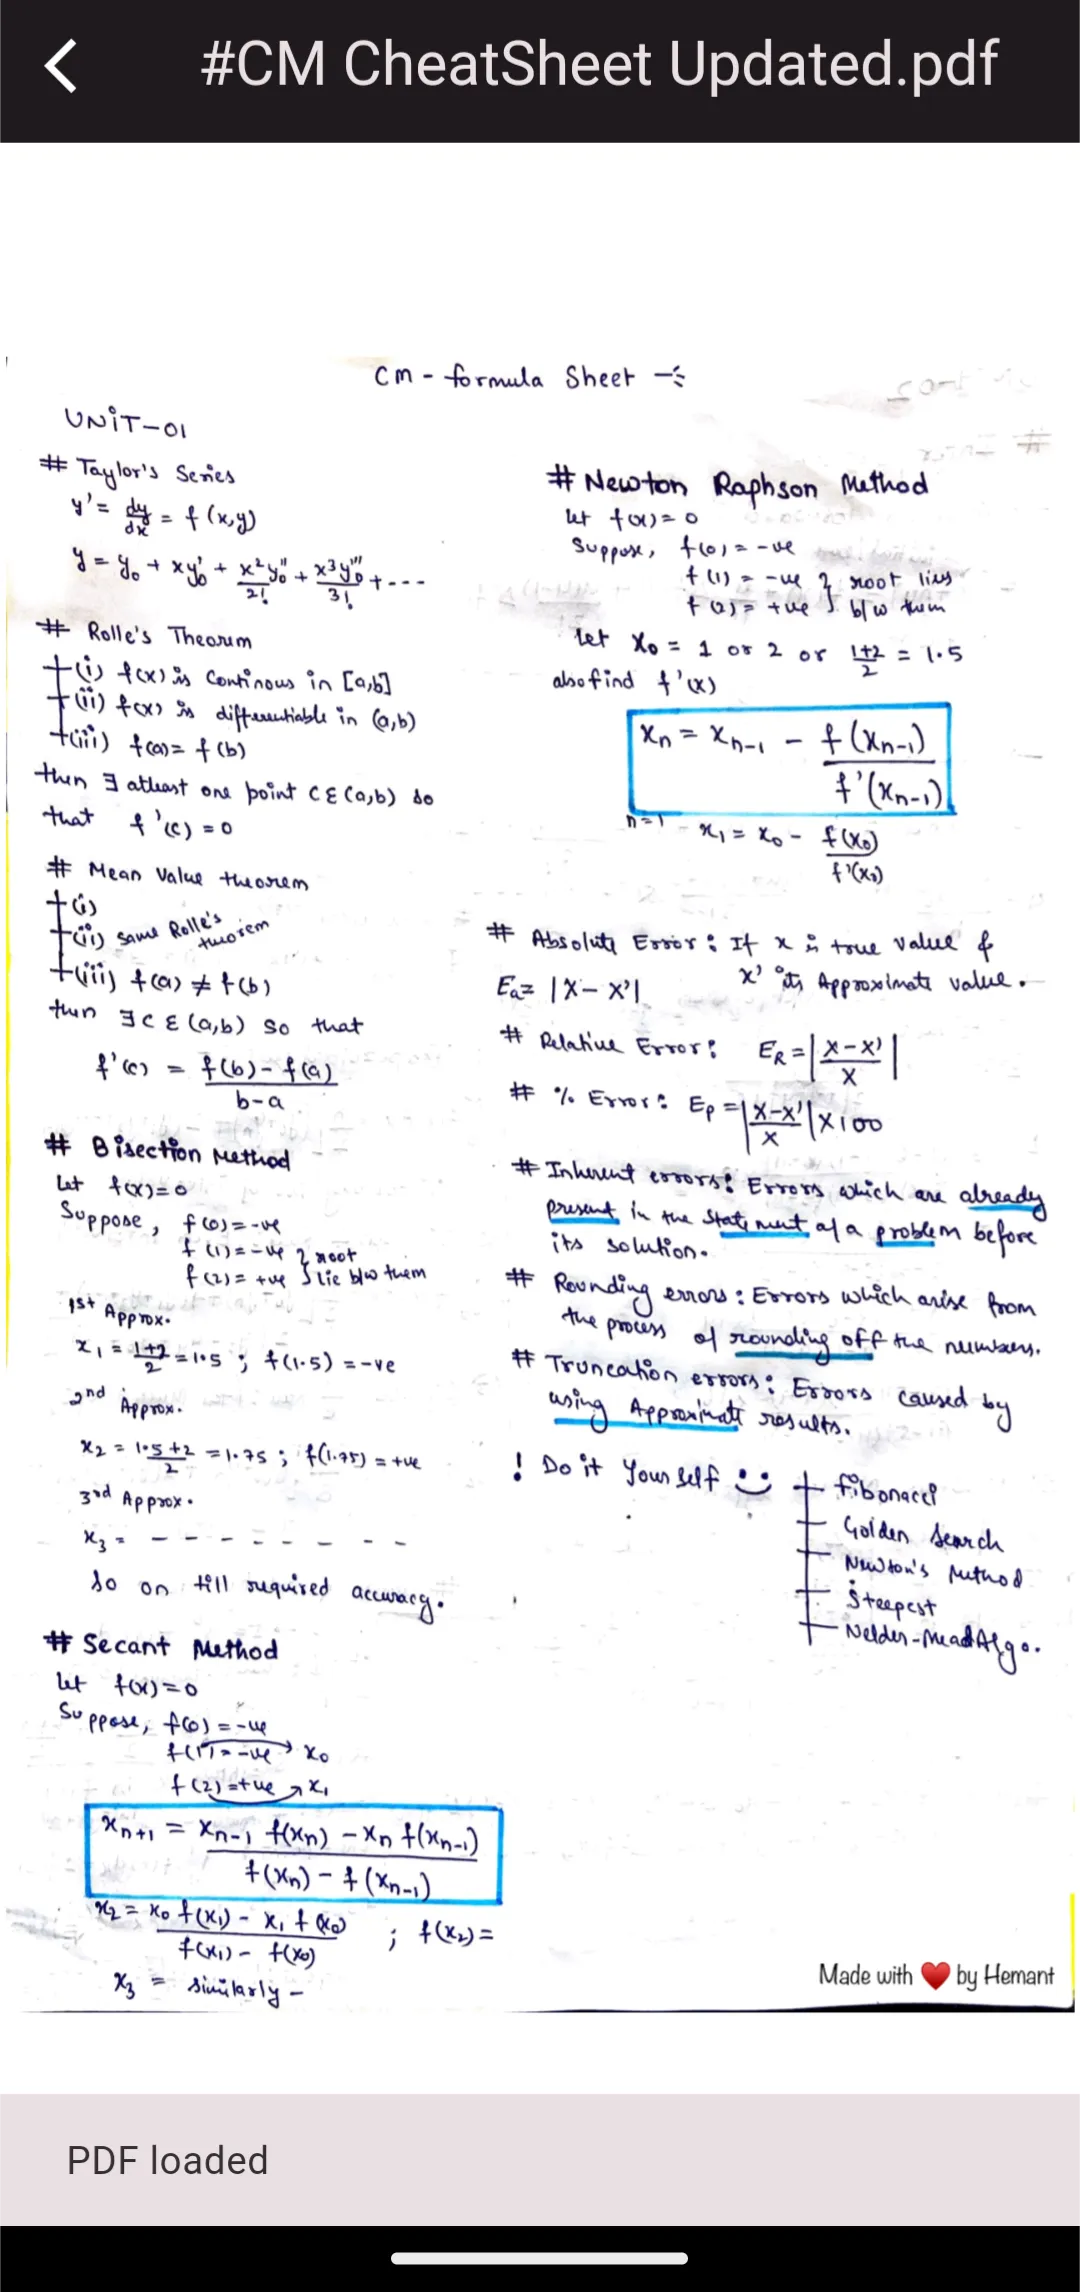 #CM CheatSheet Updated.pdf
CM - formula Sheet
UNiT-01
# Taylor's Series
y' = dy/dx = f(x,y)
y = y₀ + xy₀' + x²y₀''/2! + x³y₀'''/3! + ---
# Rolle's Theorem
(i) f(x) is Continous in [a,b]
(ii) f(x) is differentiable in (a,b)
(iii) f(a) = f(b)
then ∃ atleast one point c ε (a,b) so
that f'(c) = 0
# Mean Value theorem
(i)
(ii) same Rolle's theorem
(iii) f(a) ≠ f(b)
then ∃ c ε (a,b) so that
f'(c) = f(b) - f(a) / b-a
# Bisection Method
Let f(x)=0
Suppose, f(0) = -ve
f(1) = -ve } root
f(2) = +ve } lie b/w them
1st Approx.
x₁ = 1+2/2 = 1.5 ; f(1.5) = -ve
2nd Approx.
x₂ = 1.5+2/2 = 1.75 ; f(1.75) = +ve
3rd Approx.
x₃ = - - - - - - - -
So on till required accuracy.
# Secant Method
let f(x)=0
Suppose, f(0) = -ve
f(1) = -ve → x₀
f(2) = +ve → x₁
xₙ₊₁ = xₙ₋₁ f(xₙ) - xₙ f(xₙ₋₁) / f(xₙ) - f(xₙ₋₁)
x₂ = x₀ f(x₁) - x₁ f(x₀) / f(x₁) - f(x₀) ; f(x₂) =
x₃ = similarly -
# Newton Raphson Method
let f(x) = 0
Suppose, f(0) = -ve
f(1) = -ve } root lies
f(2) = +ve } b/w them
let x₀ = 1 or 2 or 1+2/2 = 1.5
also find f'(x)
xₙ = xₙ₋₁ - f(xₙ₋₁) / f'(xₙ₋₁)
n=1 - x₁ = x₀ - f(x₀) / f'(x₀)
# Absolute Error : If x is true value &
Ea = |X - X'| x' its Approximate value.
# Relative Error : ER = |X-X' / X|
# % Error : Ep = |X-X' / X| X100
# Inherent errors : Errors which are already
present in the statement of a problem before
its solution.
# Rounding errors : Errors which arise from
the process of rounding off the numbers.
# Truncation errors : Errors caused by
using Approximate results.
! Do it Yourself
Fibonacci
Golden Search
Newton's Method
Steepest
Nelder-Mead Algo.
Made with ❤ by Hemant
PDF loaded